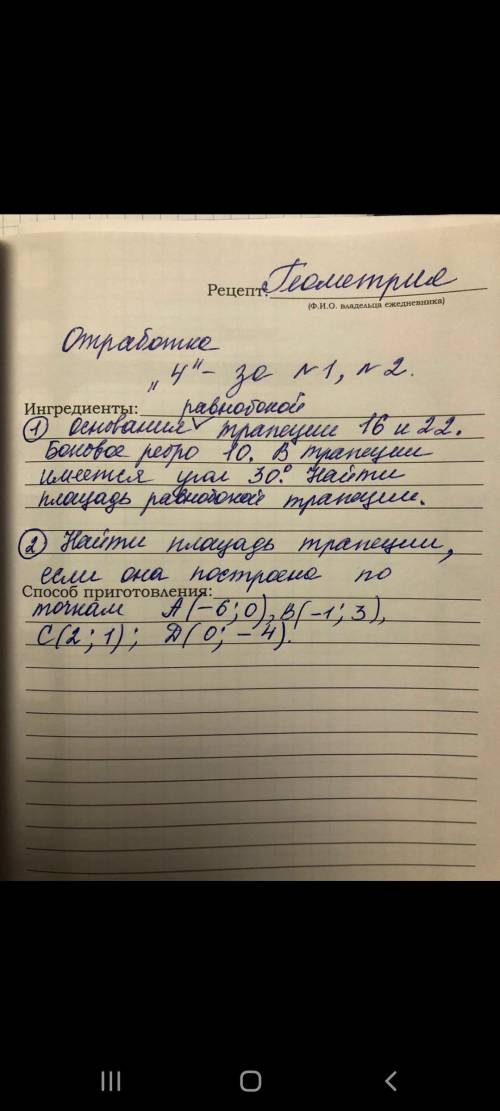 Рецепт: Геометрия
(Ф.И.О. владельца ежедневника)
Отработка
„4“ - за №1, №2.
Ингредиенты: равнобокой
① Основания трапеции 16 и 22.
Боковое ребро 10. В трапеции
имеется угол 30°. Найти
площадь равнобокой трапеции.
② Найти площадь трапеции,
если она построена по
Способ приготовления:
точкам А(-6; 0), В(-1; 3),
С(2; 1); D(0; -4).